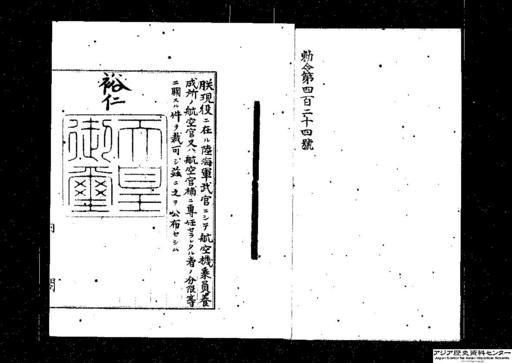 勅令第四百二十四號
朕現役ニ在ル陸海軍武官ニシテ航空機乗員養
成所ノ航空官又ハ航空官補ニ專任セラレタル者ノ分限等
ニ關スル件ヲ裁可シ茲ニ之ヲ公布セシム
裕仁
天皇
御璽
内
閣
アジア歴史資料センター
Japan Center for Asian Historical Records